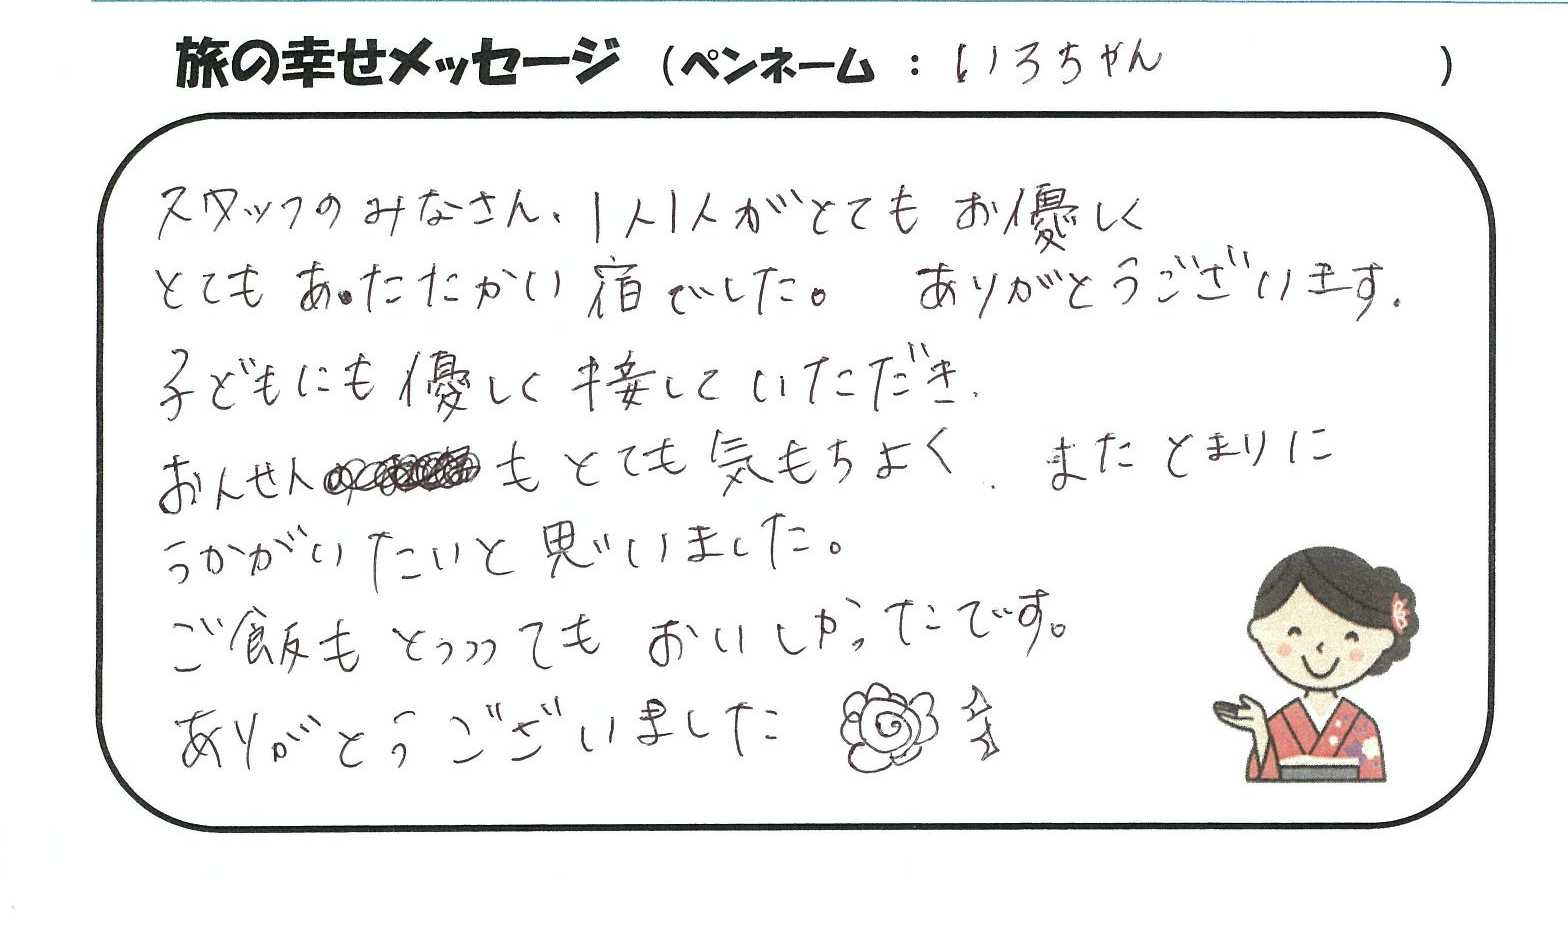 旅の幸せメッセージ (ペンネーム : いろちゃん )
スタッフのみなさん、1人1人がとてもお優しく
とても あったたかい 宿でした。 ありがとうございます.
子どもにも優しく接していただき.
おんせんもとても気もちよく. またとまりに
うかがいたいと思いました。
ご飯も とっっってもおいしかったです。
ありがとうございました